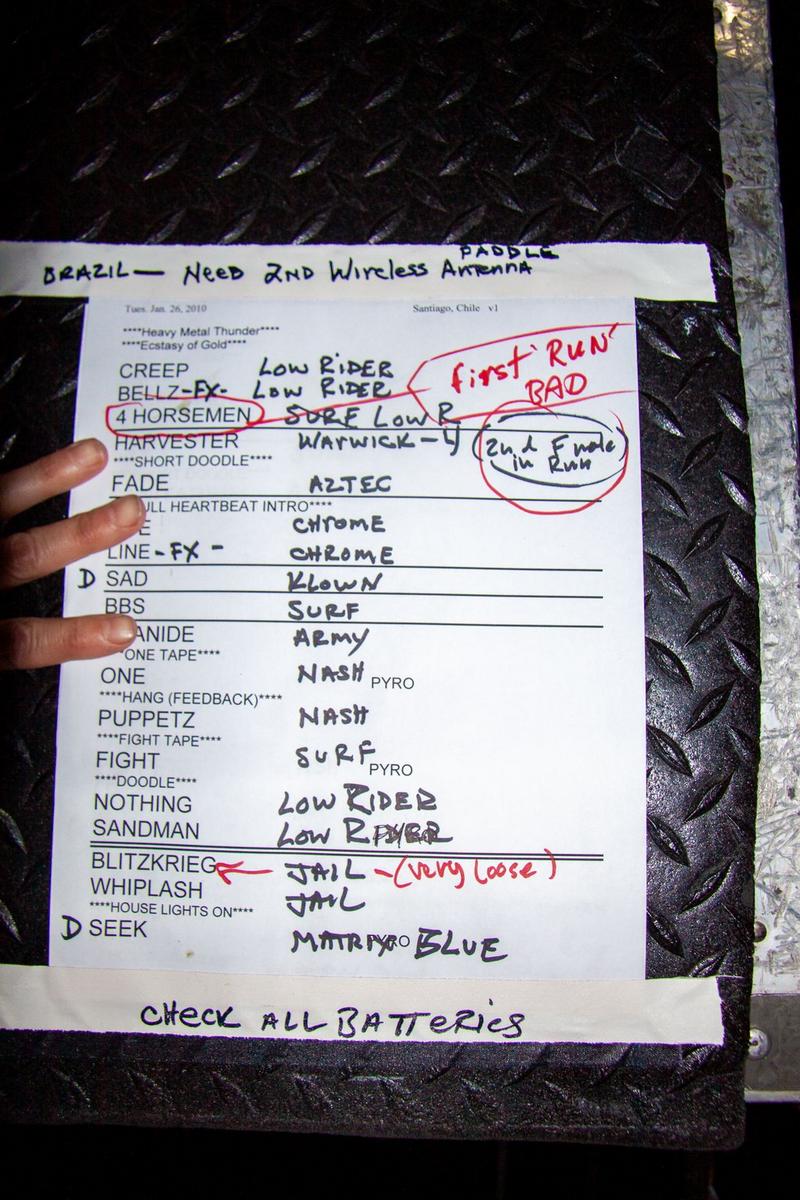 PADDLE
BRAZIL— NEED 2ND Wireless ANTENNA
Tues. Jan. 26, 2010 Santiago, Chile v1
****Heavy Metal Thunder****
****Ecstasy of Gold****
CREEP LOW RIDER
first 'RUN' BAD
BELLZ-FX- LOW RIDER
4 HORSEMEN SURF LOW R
HARVESTER WARWICK-4
2nd F note
in Run
****SHORT DOODLE****
FADE AZTEC
ULL HEARTBEAT INTRO****
E CHROME
LINE-FX- CHROME
D SAD KLOWN
BBS SURF
ANIDE ARMY
ONE TAPE****
ONE NASH PYRO
****HANG (FEEDBACK)****
PUPPETZ NASH
****FIGHT TAPE****
FIGHT SURF PYRO
****DOODLE****
NOTHING LOW RIDER
SANDMAN LOW RIDER
BLITZKRIEG JAIL -(very loose)
WHIPLASH JAIL
****HOUSE LIGHTS ON****
D SEEK MATRIX PYRO BLUE
CHECK ALL BATTERIES